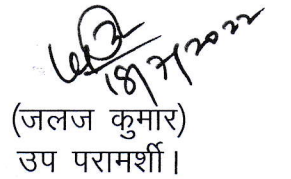 18/7/2022
(जलज कुमार)
उप परामर्शी।